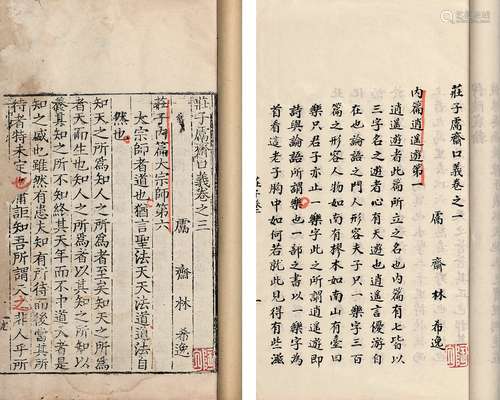 莊子鬳齋口義卷之一
鬳齋林希逸
內篇逍遙遊第一
逍遙遊者此篇所立之名也內篇有七皆以
三字名之遊者心有天遊也逍遙言優游自
在也論語之門人形容夫子只一樂字三百
篇之形容人物如南有樛木如南山有臺曰
樂只君子亦止一樂字此之所謂逍遙即
詩與論語所謂樂也一部之書以一樂字為
首看這老子胸中如何若就此見得有些滋
莊子鬳齋口義卷之三
鬳齋林希逸
莊子內篇大宗師第六
大宗師者道也猶言聖法天天法道道法自
然也
知天之所為知人之所為者至矣知天之所為
者天而生也知人之所為者以其知之所知以
養其知之所不知終其天年而不中道夭者是
知之盛也雖然有患夫知有所待而後當其所
待者特未定也庸詎知吾所謂天之非人乎所